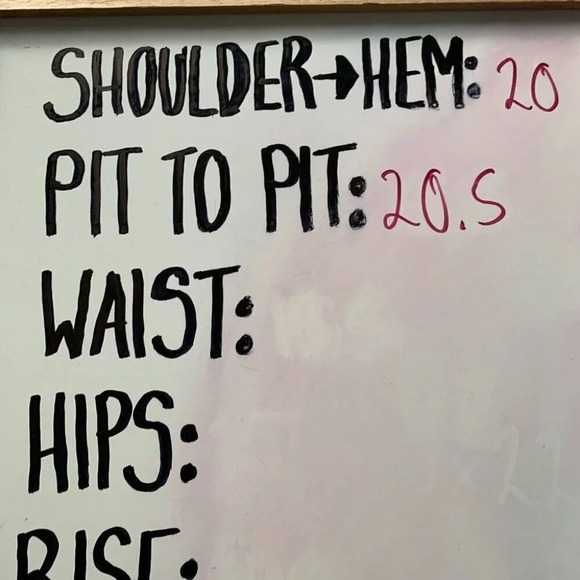 SHOULDER→HEM: 20
PIT TO PIT: 20.5
WAIST:
HIPS:
RISE: